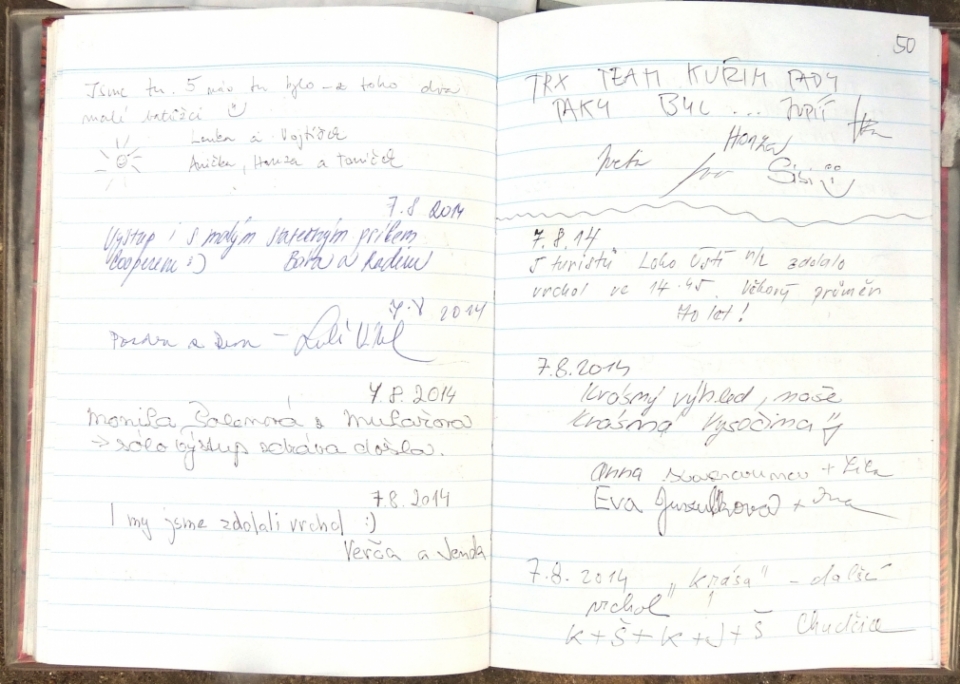 Jsme tu. 5 nás tu bylo - z toho dva
malí
Lenka a Vojtíšek
Anička, Honza a Toníček
7.8 2014
Výstup i s malým statečným psíkem
Cooperem :)
Bára a Radim
7.8 2014
Pozdrav z Brna -
7.8.2014
Monika
→ sólo výstup zdráva došla.
7.8.2014
I my jsme zdolali vrchol :)
Verča a Jenda
50
TRX TEAM KUŘIM TADY
TAKY BYL ... JUPÍÍ
Honza
Iveta Ivo Sisi
7.8.14
5 turistů Loko Ústí n/L zdolalo
vrchol ve 14.45. Věkový průměr
70 let!
7.8.2014
Krásný výhled, naše
krásná Vysočina
Anna
Eva
7.8.2014 „Krása" - další
vrchol !
K + Š + K + J + Š